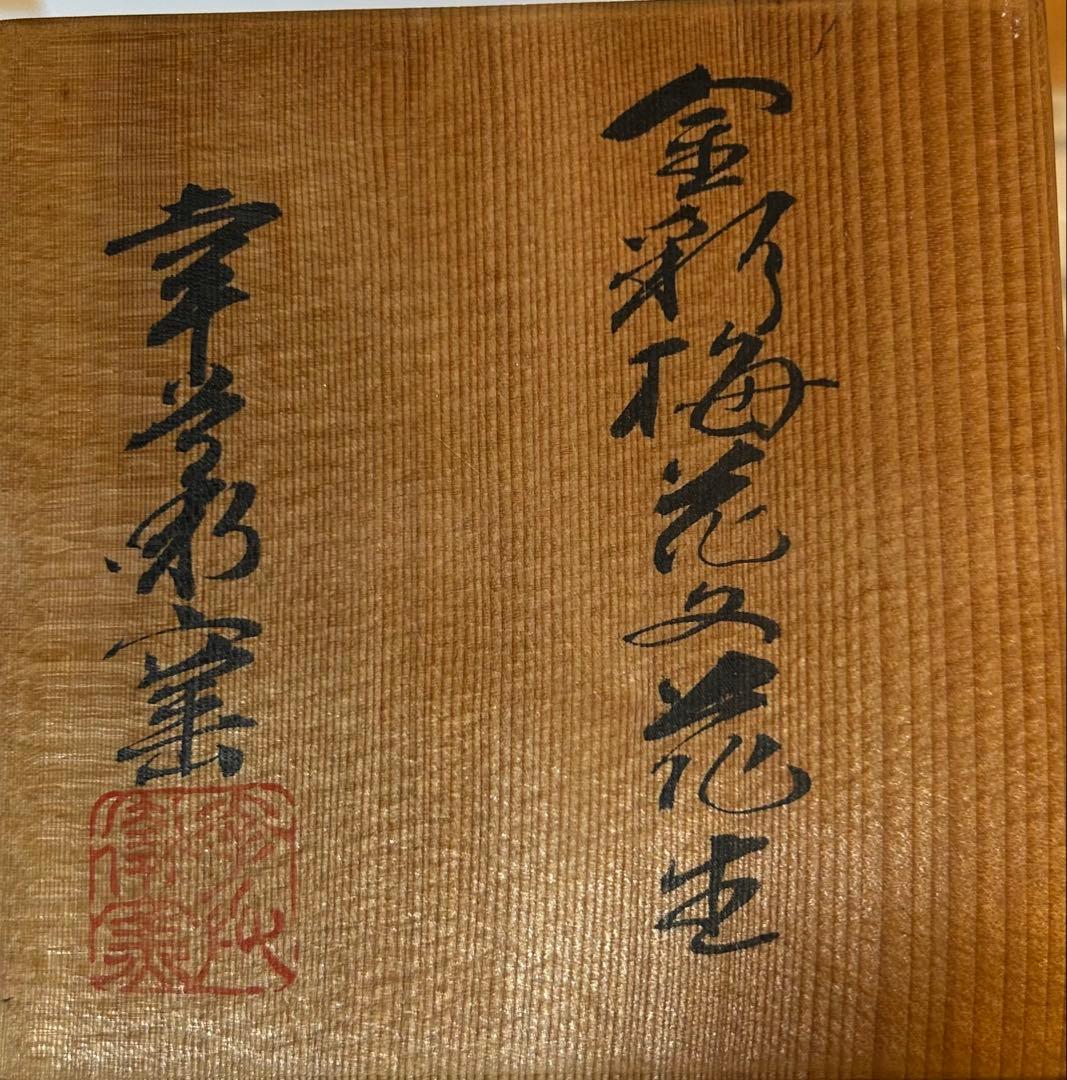 金彩梅花文花生
幸兵衛窯